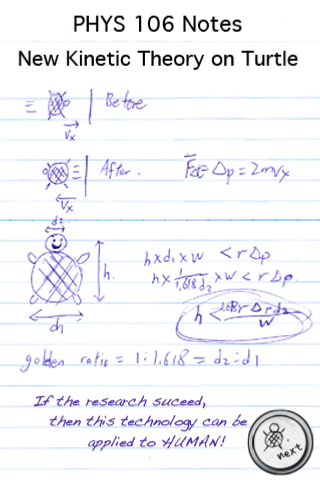 PHYS 106 Notes
New Kinetic Theory on Turtle
Before
Vx
After.
Δp = 2mVx
Vx
d2
h.
d1
h×d1×w < rΔp
h× 1/1.618 d2 ×w < rΔp.
h <
w
golden ratio = 1:1.618 = d2:d1
If the research suceed,
then this technology can be
applied to HUMAN!
next